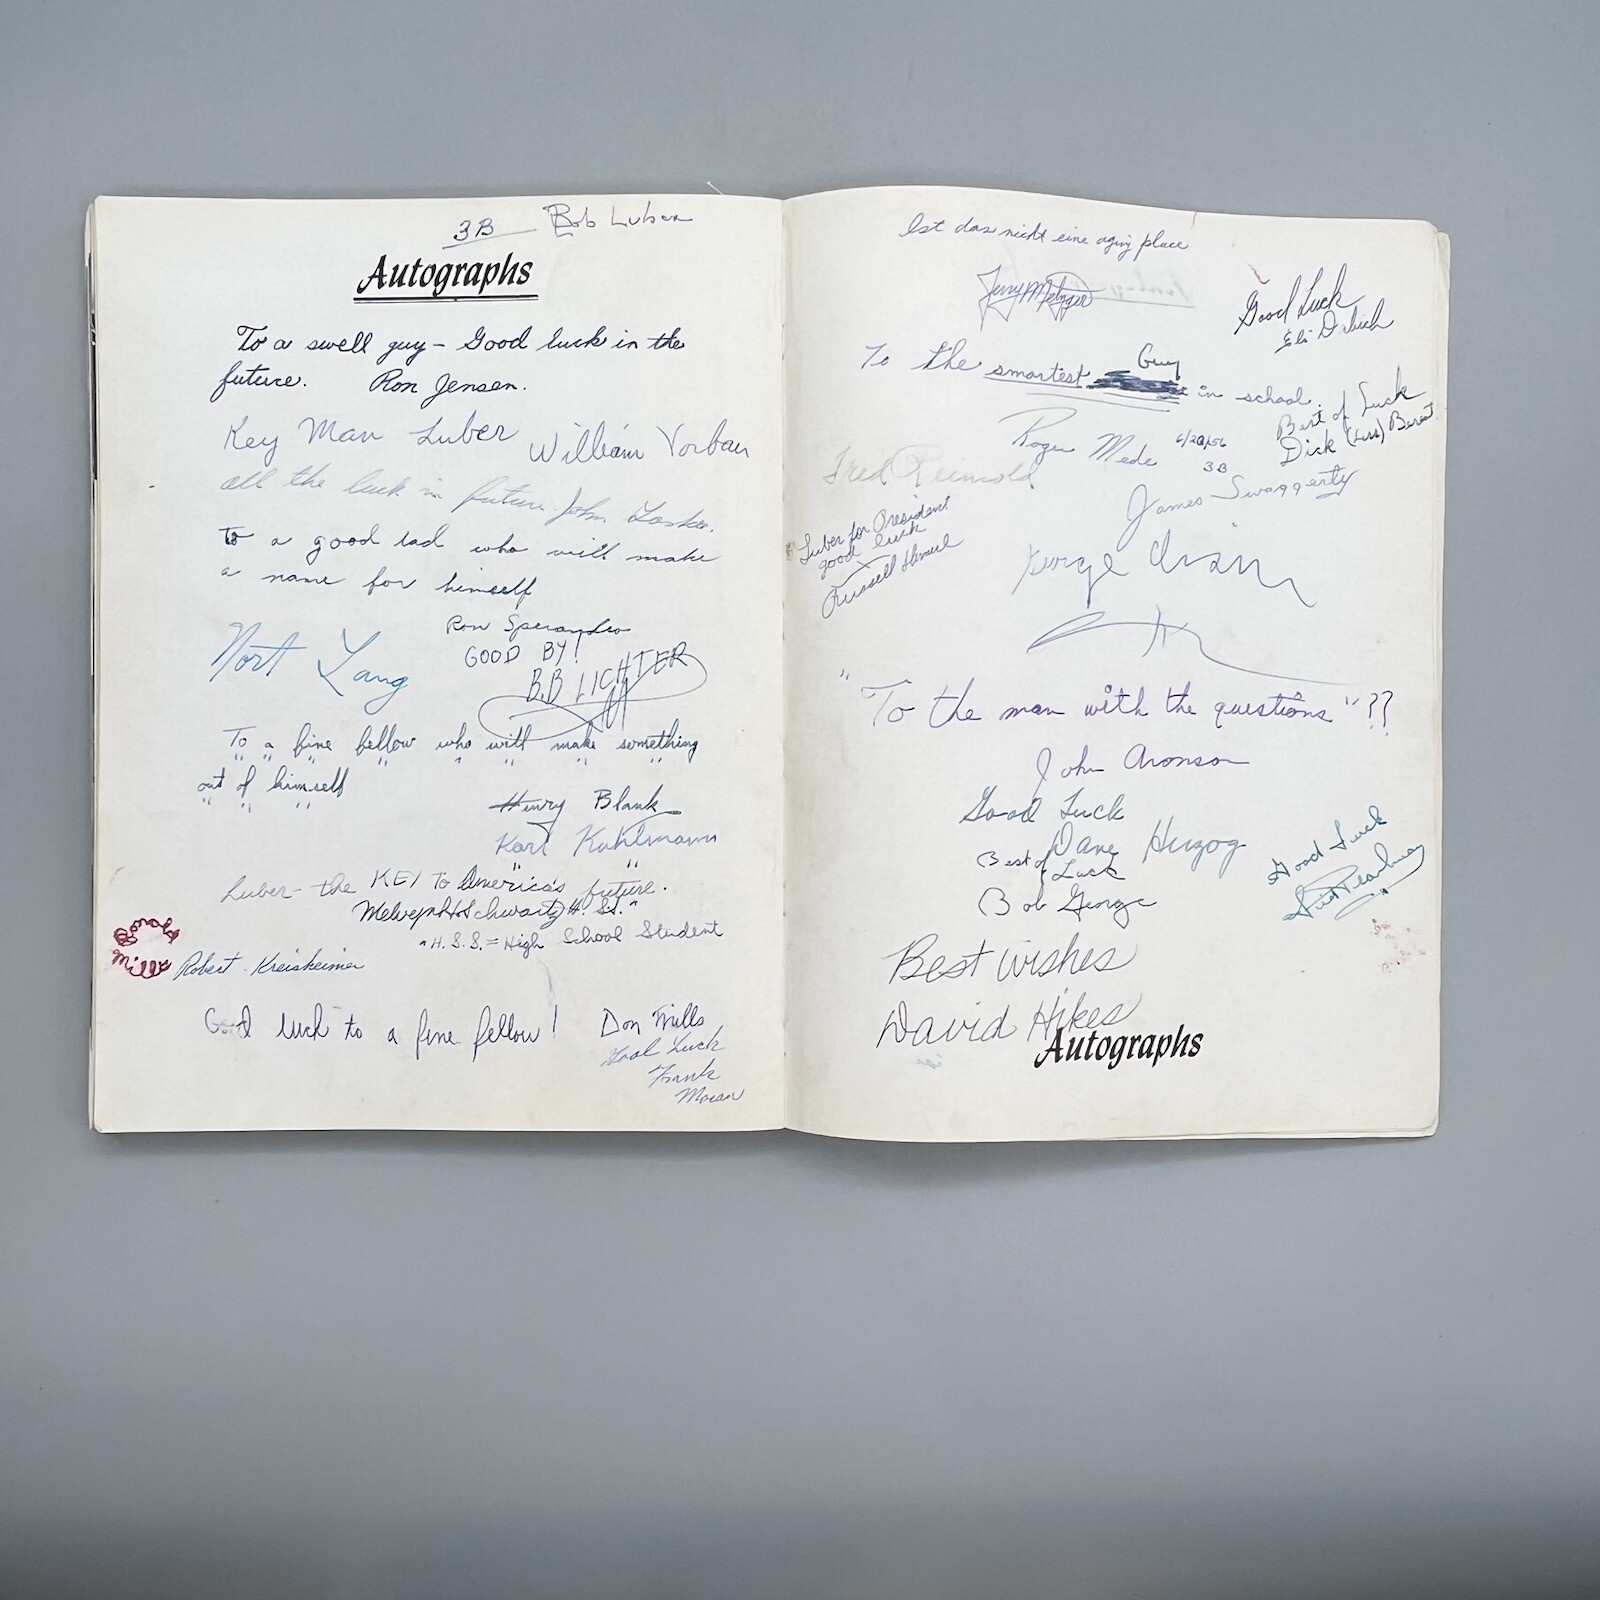 3B Bob Luber
Autographs
To a swell guy – Good luck in the
future. Ron Jensen.
Key Man Luber William Vorbau
all the luck in future John
to a good lad who will make
a name for himself
Ron Sperandeo
Nort Lang
GOOD BY!
B.B LICHTER
To a fine fellow who will make something
out of himself
Henry Blank
Karl Kuhlmann
Luber – the KEY To America's future.
Melvyn H. Schwartz H.S.S.*
*H.S.S. = High School Student
Donald
Mills
Robert Kreisheimer
Good luck to a fine fellow! Don Mills
Good Luck
Frank
Moran
Ist das nicht eine aging place
Jerry Metzger
Good Luck
Eli
To the smartest Guy in school.
Roger Mede 6/20/56
3B
Best of Luck
Dick
Fred Reinold
James Swaggerty
Luber for President
good luck
Russell
George
"To the man with the questions"??
John Aronson
Good Luck
Dave Herzog
Best of Luck
Bob George
Good Luck
Best wishes
David Hikes
Autographs